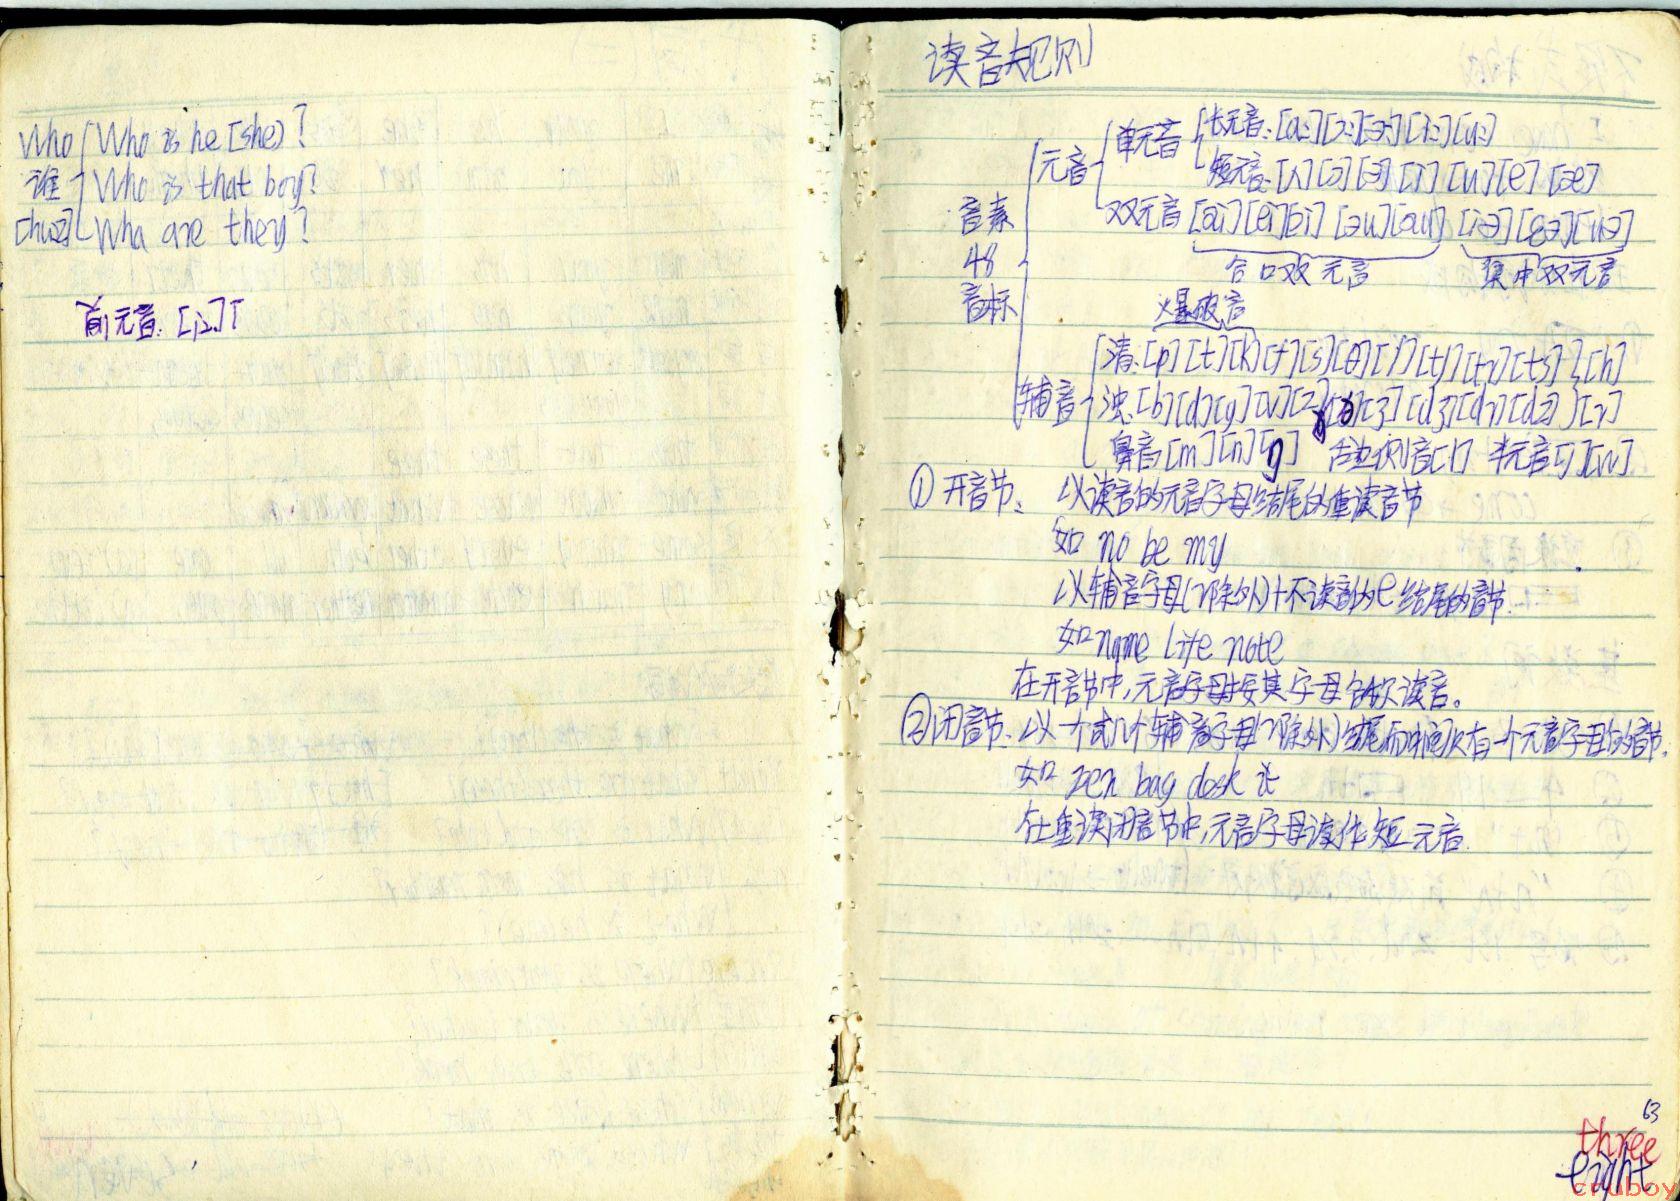 Who Who is he [she)?
谁 Who is that boy?
[hu:z] Wha are they?
前元音: [i:] [
读音规则
音素
48
音标
元音 单元音 长元音: [a:] [ɔ:] [ə:] [i:] [u:]
短元音: [ʌ] [ɔ] [ə] [i] [u] [e] [æ]
双元音 [ai] [ei] [ɔi] [əu] [au] [iə] [εə] [uə]
合口双元音 集中双元音
爆破音
辅音 清: [p] [t] [k] [f] [s] [θ] [ʃ] [tʃ] [tr] [ts] [h]
浊: [b] [d] [g] [v] [z] [ð] [ʒ] [dʒ] [dr] [dz] [r]
鼻音 [m] [n] [ŋ] 舌边侧音 [l] 半元音 [j] [w]
① 开音节: 以读音的元音字母结尾的重读音节
如 no be my
以辅音字母(r除外)+不读音的e结尾的音节.
如 name life note
在开音节中,元音字母按其字母名称读音。
② 闭音节. 以一个或几个辅音字母(r除外)结尾而中间只有一个元音字母的音节.
如 zen bag desk it
在重读闭音节中,元音字母读作短元音.
63
three
eight
cnuboy